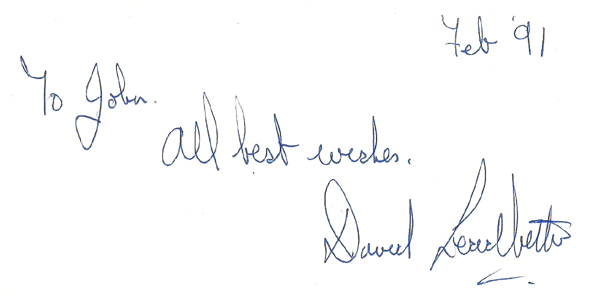 Feb '91
To John.
All best wishes.
David Leadbetter